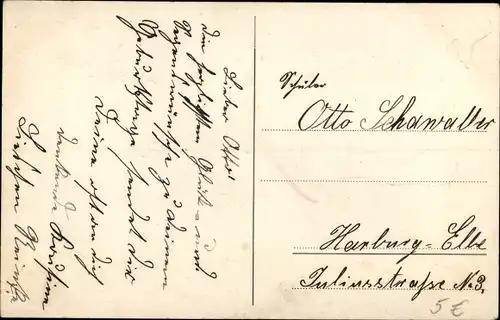 Lieber Otto!
Die herzlichsten Glück- und
Segenswünsche zu deinem
Geburtstage sendet dir
Deine oft an dich
denkende Cousine
Lieschen
Schüler
Otto Schawaller
Harburg-Elbe
Juliusstraße No 3.
5 €